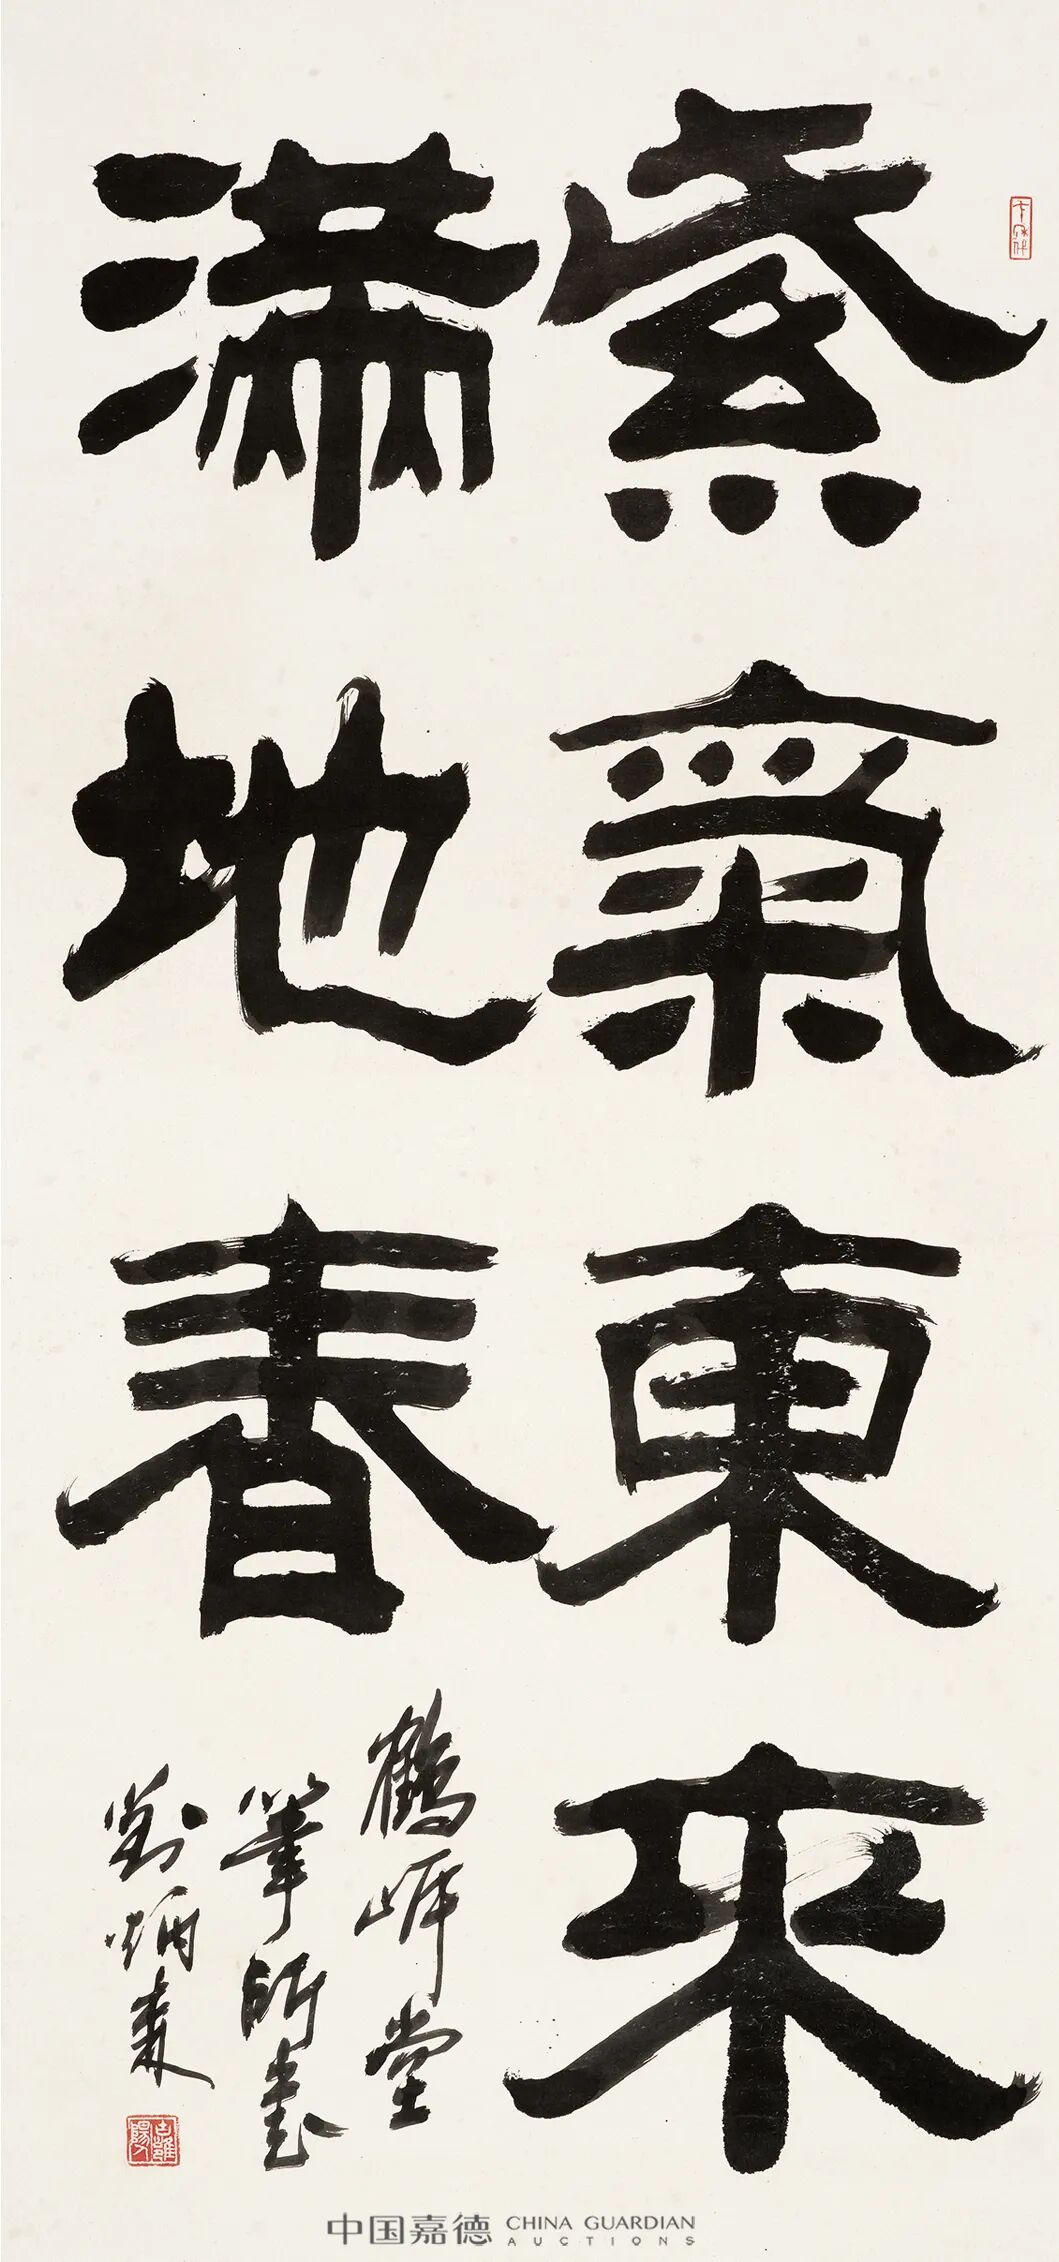 紫氣東來
滿地春
鶴岼堂
筆師書
劉炳森
中国嘉德 CHINA GUARDIAN
AUCTIONS